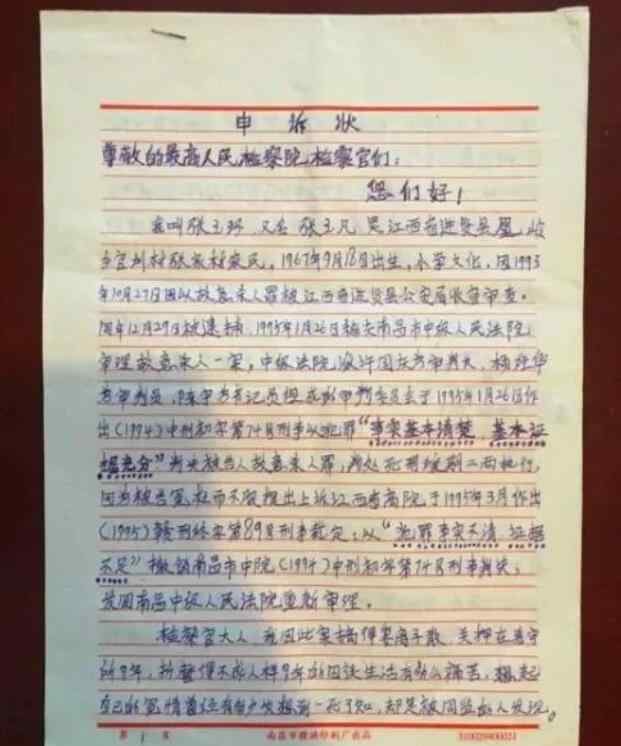 申诉状
尊敬的最高人民检察院检察官们：
您们好！
我叫张玉环，又名张玉凡 是江西省进贤县凰岭
乡宫刘村张家村农民，1967年9月18日出生，小学文化，因1993
年10月27日因以故意杀人罪被江西省进贤县公安局收容审查。
同年12月29日被逮捕，1995年1月26日被南昌市中级人民法院
审理故意杀人一案，中级法院
审判员，书记员组成审判委员会于1995年1月26日作
出（1994）中刑初字第74号刑事以犯罪“事实基本清楚，基本证
据充分”判决被告人故意杀人罪，判处死刑缓期二年执行，
因为被告冤枉而不服提出上诉江西省高院于1995年3月作出
（1995）赣刑终字第89号刑事裁定，以“犯罪事实不清 证据
不足”撤销南昌市中院（1994）中刑初字第74号刑事判决，
发回南昌中级人民法院重新审理。
检察官大人，我因此案搞得妻离子散，关押在看守
所9年，折磨得不成人样9年的囚徒生活有多么痛苦，想起
自己的冤情曾经有多少次想到一死了之，却是被同监的人发现。
第 1 页 南昌市 印刷厂出品